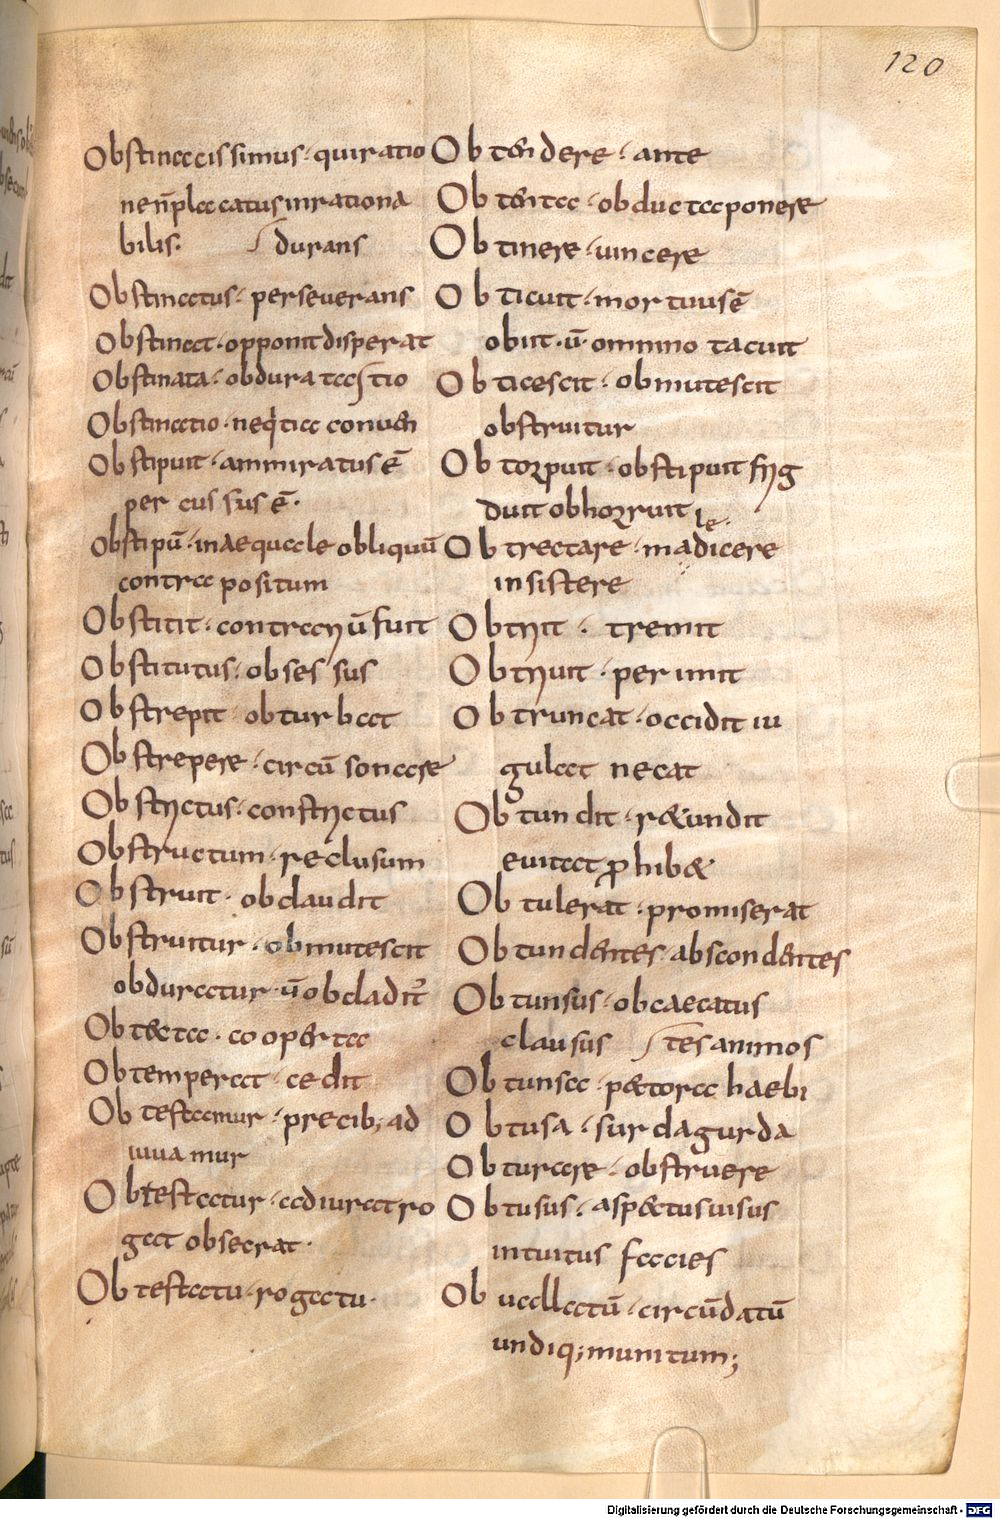 120
Obstinacissimus · qui ratio
nen̄ placatus inrationa
bilis · ſ durans
Obstinatus · perseverans
Obstinat · opponit disperat
Obstinata · obdurata ſtio
Obstinatio · neq;
Obstipuit · ammiratus ē
percussus ē ·
Obstipū · inaequale obliquū
contra positum
Obstitit · contrariū fuit
Obstitutus · obsessus
Obstrepit · obturbat
Obstrepere · circū sonare
Obstrictus · constrictus
Obstructum · reclusum
Obstruit · obclaudit
Obstruitur · obmutescit
obduratur · ū obcladit᷑
Obtecta · cooperta
Obtemperat · cedit
Obtestamur · precib; ad
iuuamur
Obtestatur · adiurat ro
gat obsecrat ·
Obtestatu · rogatu ·
Obtendere · ante
Obtenta · obducta ponere
Obtinere · uincere
Obticuit · mortuus ē
obiit · ū · omnino tacuit
Obticescit · obmutescit
obstruitur
Obtorpuit · obstipuit frig
duit obhorruit
Obtrectare · maledicere
insistere
Obtrit · tremit
Obtriuit · perimit
Obtruncat · occidit iu
gulat necat
Obtundit · retundit
euitat prohibet
Obtulerat · promiserat
Obtundentes · abscondentes
Obtunsus · obcaecatus
clausus ſ tes animos
Obtunsa · pectora haebi
Obtusa · surda gurda
Obturare · obstruere
Obtusus · aspectus uisus
intuitus facies
Obuallatū · circūdatū
undiq; munitum;
Digitalisierung gefördert durch die Deutsche Forschungsgemeinschaft - DFG